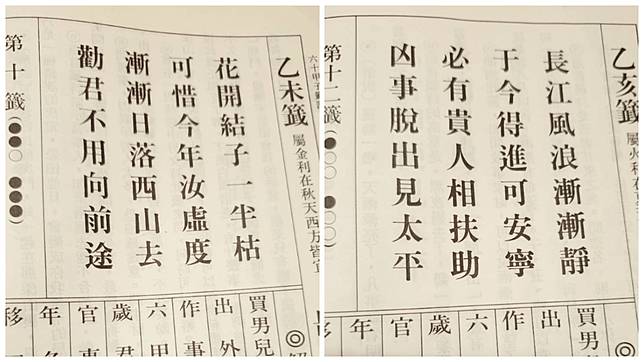 六十甲子籤
乙未籤 屬金利在秋天西方皆宜
花開結子一半枯
可惜今年汝虛度
漸漸日落西山去
勸君不用向前途
第十籤(●●○ ●●●)
買男兒
出外
作事
六甲
歲君
官事
年
移
乙亥籤 屬火利在
長江風浪漸漸靜
于今得進可安寧
必有貴人相扶助
凶事脫出見太平
第十二籤
買男
出
作
六
歲
官
年